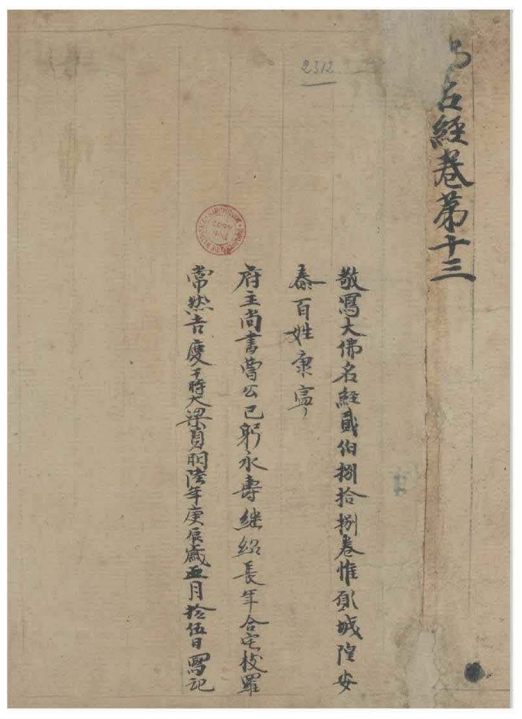 名經卷第十三
敬寫大佛名經貳佰捌拾捌卷惟願城隍安
泰百姓康寧
府主尚書曹公己躬永壽継紹長年合宅枝羅
常然吉慶于時大梁貞明陸年庚辰歲五月拾伍日寫記
2312